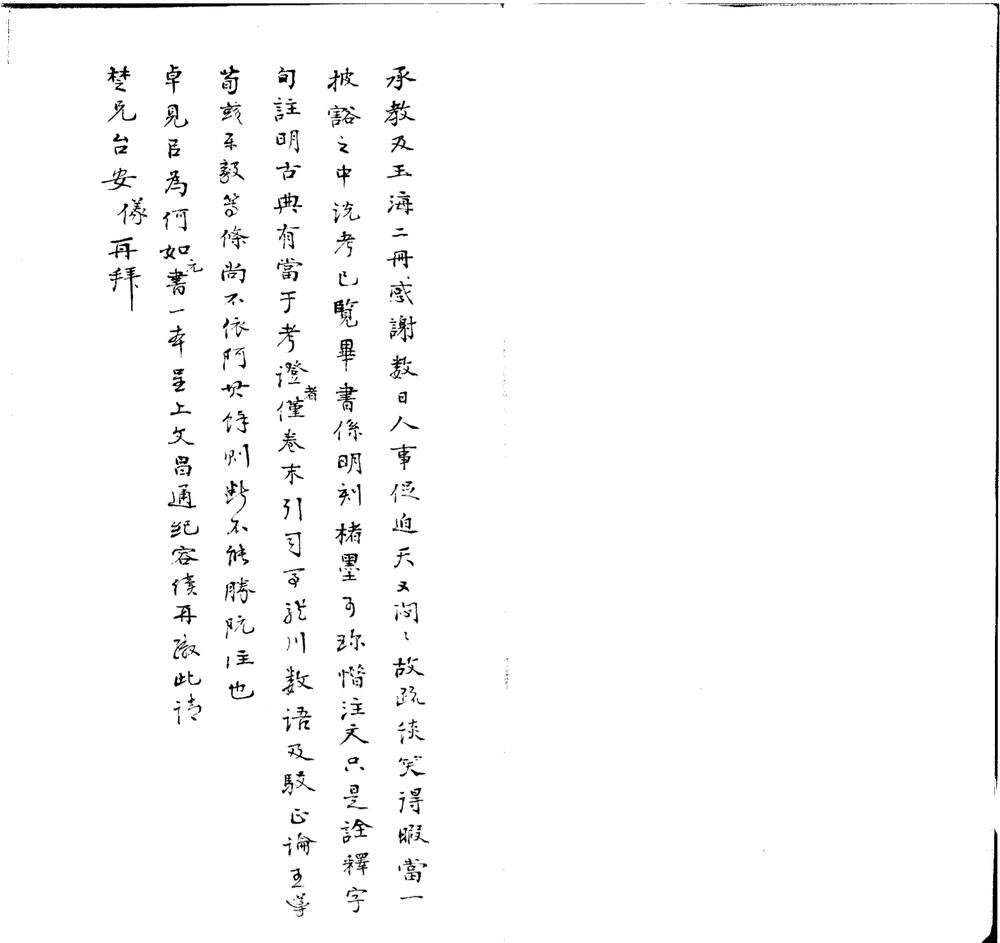 承教及玉海二冊感謝数日人事促迫天又悶〻故疏談笑得暇當一
披豁之中说考已覽畢書係明刻楮墨可珎惜注文只是詮釋字
句註明古典有當于考證者僅卷末引司馬龍川数語及駁正論王導
荀彧乐毅等條尚不依阿其餘则断不能勝阮注也
卓見以為何如元書一本呈上文昌通紀容續再繳此请
楚兄台安儀再拜